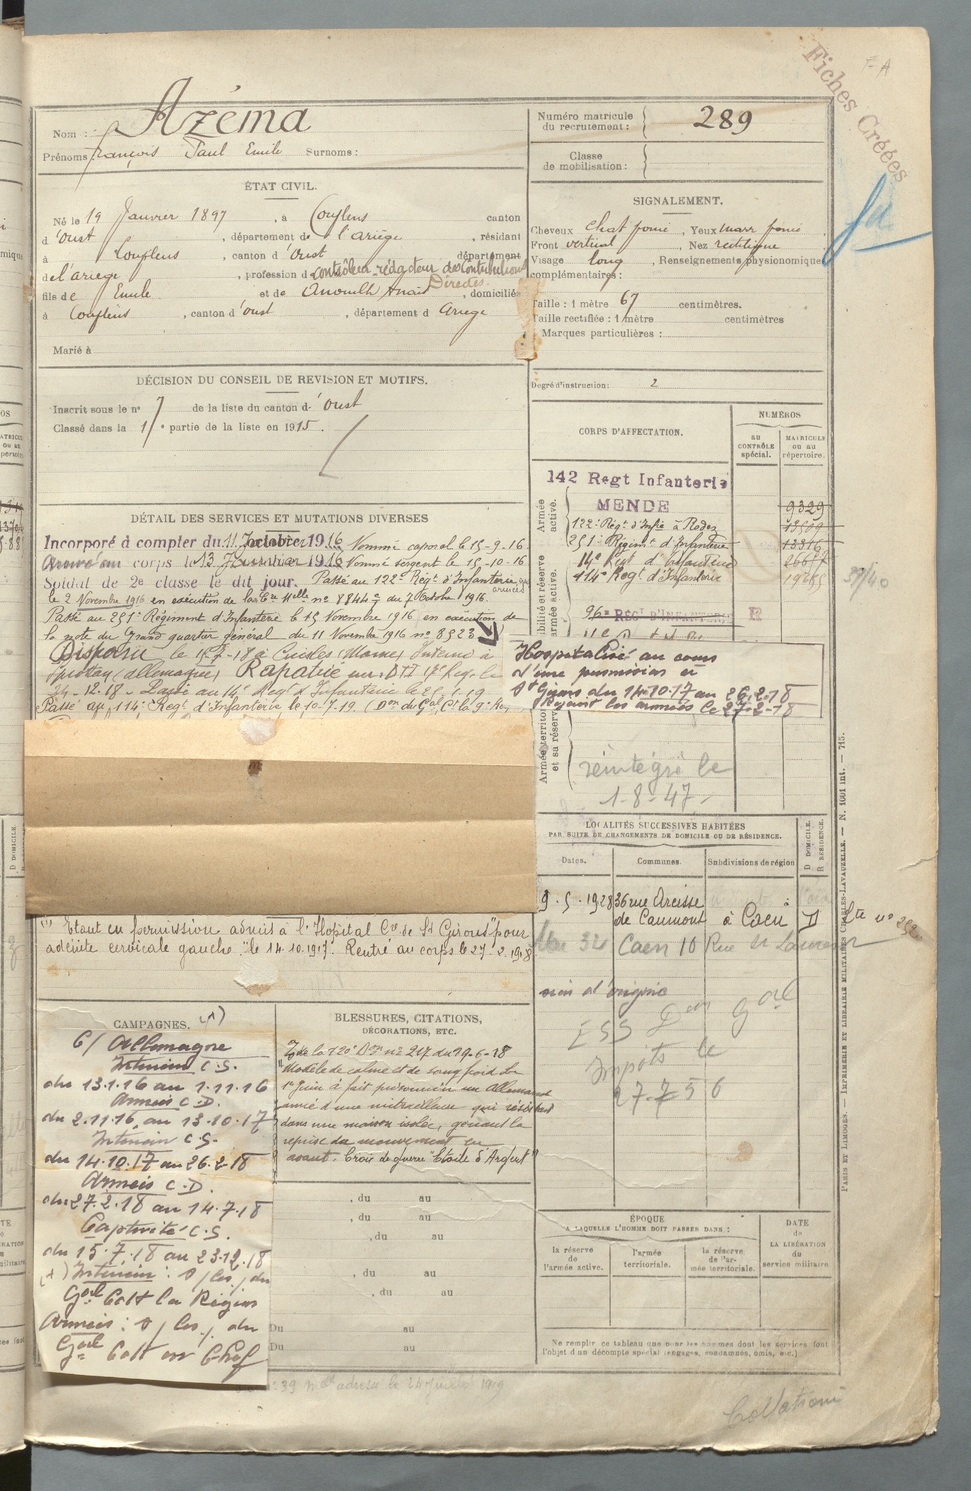 Fiches Créées
Nom : Azéma
Prénoms François Paul Emile Surnoms :
Numéro matricule du recrutement : 289
Classe de mobilisation :
ÉTAT CIVIL.
Né le 19 Janvier 1897, à Couflens canton
d'Oust, département de l'ariège, résidant
à Couflens, canton d'Oust département
de l'ariège, profession de contrôleur-rédacteur des Contributions Directes
fils de Emile et de Anouilh Anaïs, domiciliés
à Couflens, canton d'Oust, département d Ariège
Marié à
SIGNALEMENT.
Cheveux chat foncé, Yeux marr foncé
Front vertical, Nez rectiligne
Visage long, Renseignements physionomiques
complémentaires :
Taille : 1 mètre 67 centimètres.
Taille rectifiée : 1 mètre centimètres
Marques particulières :
Degré d'instruction : 2
DÉCISION DU CONSEIL DE REVISION ET MOTIFS.
Inscrit sous le n° 7 de la liste du canton d'Oust
Classé dans la 1re partie de la liste en 1915.
CORPS D'AFFECTATION.
NUMÉROS
au CONTRÔLE spécial.
MATRICULE ou au répertoire.
Armée active.
142 Regt Infanterie
MENDE 9329
122e Régt d'Infie à Rodez
251e Régiment d'Infanterie 13316
14e Regt d'Infanterie
114e Regt d'Infanterie
96e REGT D'INFANTERIE
DÉTAIL DES SERVICES ET MUTATIONS DIVERSES
Incorporé à compter du 11 1916 Nommé caporal le 15-9-16
Arrivé au corps le 13 1916 Nommé sergent le 15-10-16
Soldat de 2e classe le dit jour. Passé au 122e Régt d'Infanterie
le 2 Novembre 1916 en exécution de la Cre Mlle n° 8844 du 2 Octobre 1916.
Passé au 251e Régiment d'Infanterie le 15 Novembre 1916 en exécution de
la note du Grand quartier général du 11 Novembre 1916 n° 8523
Disparu le 15-7-18 à Cuisles (Marne) Interné à
(Allemagne) Rapatrié
24-12-18. Passé au 14e Regt d'Infanterie le 25-1-19
Passé au 114e Regt d'Infanterie le 10.7.19.
Hospitalisé au cours
d'une permission à
St Girons du 14.10.17 au 26.2.18
Rejoint les armées le 27-2-18
Armée territoriale et sa réserve
réintégré le
1-8-47
LOCALITÉS SUCCESSIVES HABITÉES
PAR SUITE DE CHANGEMENTS DE DOMICILE OU DE RÉSIDENCE.
Dates. Communes. Subdivisions de région
D DOMICILE. R RÉSIDENCE.
9.5.1928 36 rue Arcisse
de Caumont à Caen D
32 Caen 10 Rue St Laurent
ESS Don Gal
Impôts le
27-7-56
(1) Etant en permission admis à l'Hopital Cre de St Girons pour
adénite cervicale gauche le 14.10.1917. Rentré au corps le 27.2.1918
CAMPAGNES.
C/ Allemagne
Intérieur C.S.
du 13.1.16 au 1.11.16
Armées C.D.
du 2.11.16 au 13.10.17
Intérieur C.S.
du 14.10.17 au 26.2.18
Armées C.D.
du 27.2.18 au 14.7.18
Captivité C.S.
du 15.7.18 au 23.12.18
Intérieur : s/ les / du
Gal Cdt la Région
Armées : s/ les / du
Gal Cdt en Chef
BLESSURES, CITATIONS, DÉCORATIONS, ETC.
de la 120e D.I. n° 217 du 19-6-18
"Modèle de calme et de sang froid. Le
1er Juin a fait prisonnier un Allemand
armé d'une mitrailleuse qui résistait
dans une maison isolée, gênant la
reprise du mouvement en
avant. Croix de guerre "Etoile d'Argent"
, du au
, du au
, du au
, du au
, du au
Du au
Du au
ÉPOQUE
A LAQUELLE L'HOMME DOIT PASSER DANS :
la réserve de l'armée active.
l'armée territoriale.
la réserve de l'armée territoriale.
DATE DE LA LIBÉRATION du service militaire
Ne remplir ce tableau que pour les hommes dont les services font
l'objet d'un décompte spécial (engagés, condamnés, omis, etc.)
PARIS ET LIMOGES. — IMPRIMERIE ET LIBRAIRIE MILITAIRES CHARLES-LAVAUZELLE. — N. 1001 int. — 7-15.
Collationné